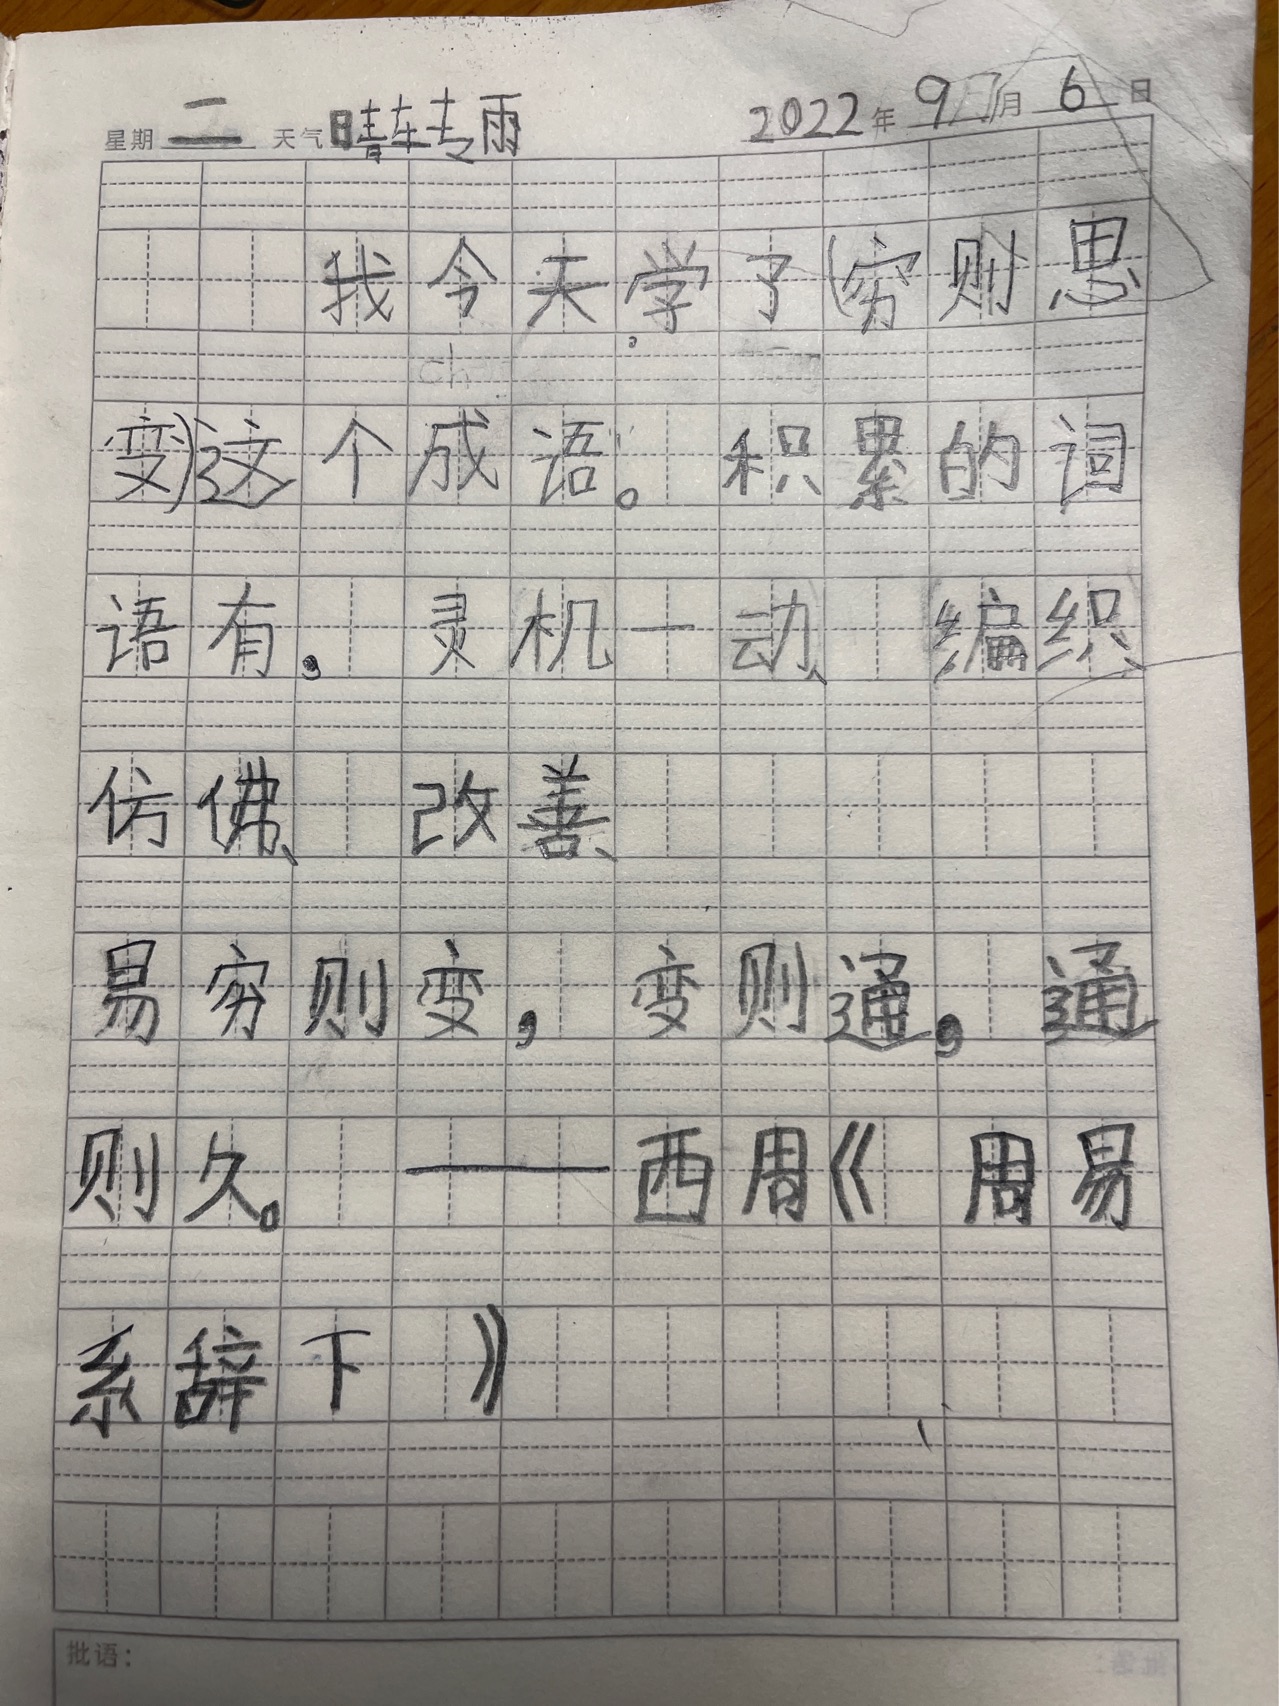 星期 二 天气 晴转雨 2022年 9月 6日
我今天学了(穷则思
变)这个成语。积累的词
语有, 灵机一动、编织、
仿佛、改善、
易穷则变,变则通,通
则久。——西周《周易
系辞下》
批语: